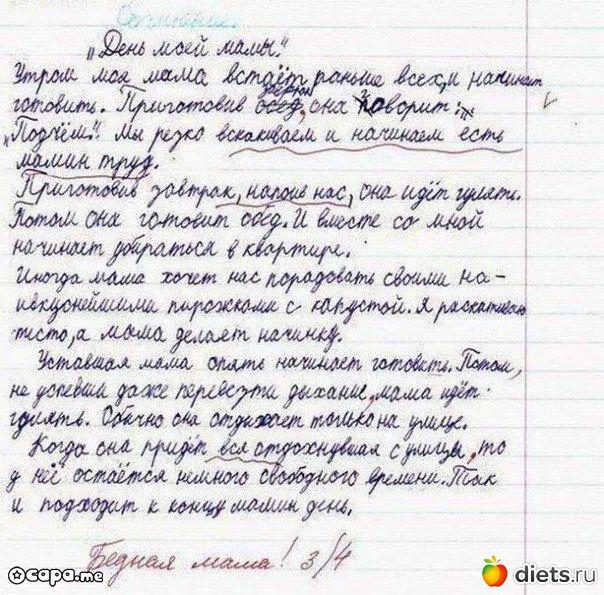 Сочинение.
„День моей мамы."
Утром моя мама встаёт раньше всех, и начинает
готовить. Приготовив завтрак, она говорит:
„Подъём". Мы резко вскакиваем и начинаем есть
мамин труд.
Приготовив завтрак, напоив нас, она идёт гулять.
Потом она готовит обед. И вместе со мной
начинает убираться в квартире.
Иногда мама хочет нас порадовать своими на-
ивкуснейшими пирожками с капустой. Я раскатываю
тесто, а мама делает начинку.
Уставшая мама опять начинает готовить. Потом,
не успевши даже перевезти дыхание, мама идёт
гулять. Обычно она отдыхает только на улице.
Когда она придёт вся отдохнувшая с улицы, то
у неё остаётся немного свободного времени. Так
и подходит к концу мамин день.
Бедная мама! 3/4
capa.me
diets.ru